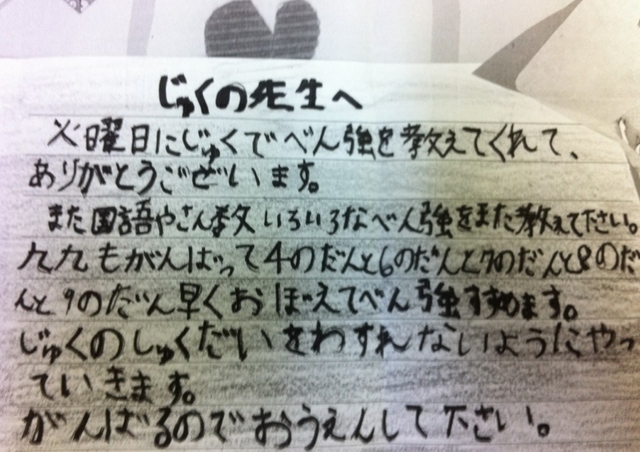 じゅくの先生へ
火曜日にじゅくでべん強を教えてくれて、
ありがとうございます。
また国語やさん数いろいろなべん強をまた教えて下さい。
九九もがんばって4のだんと6のだんと7のだんと8のだ
んと9のだん早くおぼえてべん強すすめます。
じゅくのしゅくだいをわすれないようにやっ
ていきます。
がんばるのでおうえんして下さい。